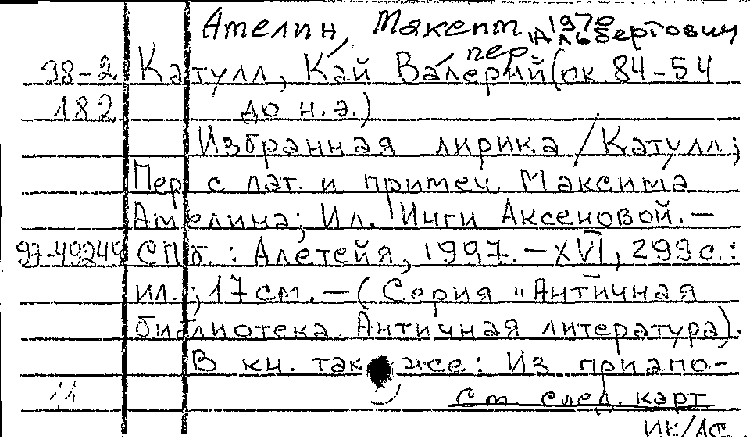 Амелин, Максим Альбертович 1970
пер.
98-2 Катулл, Кай Валерий (ок 84-54
182 до н.э.)
Избранная лирика / Катулл;
Пер с лат. и примеч. Максима
Амелина; Ил. Инги Аксеновой. —
97-49249 СПб. : Алетейя, 1997. — XVI, 299 с. :
ил. ; 17 см. — (Серия "Античная
библиотека. Античная литература).
В кн. также: Из приапо-
См след. карт